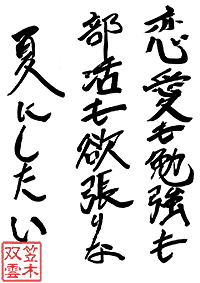 恋愛も勉強も
部活も欲張りな
夏にしたい
笠木
双雲